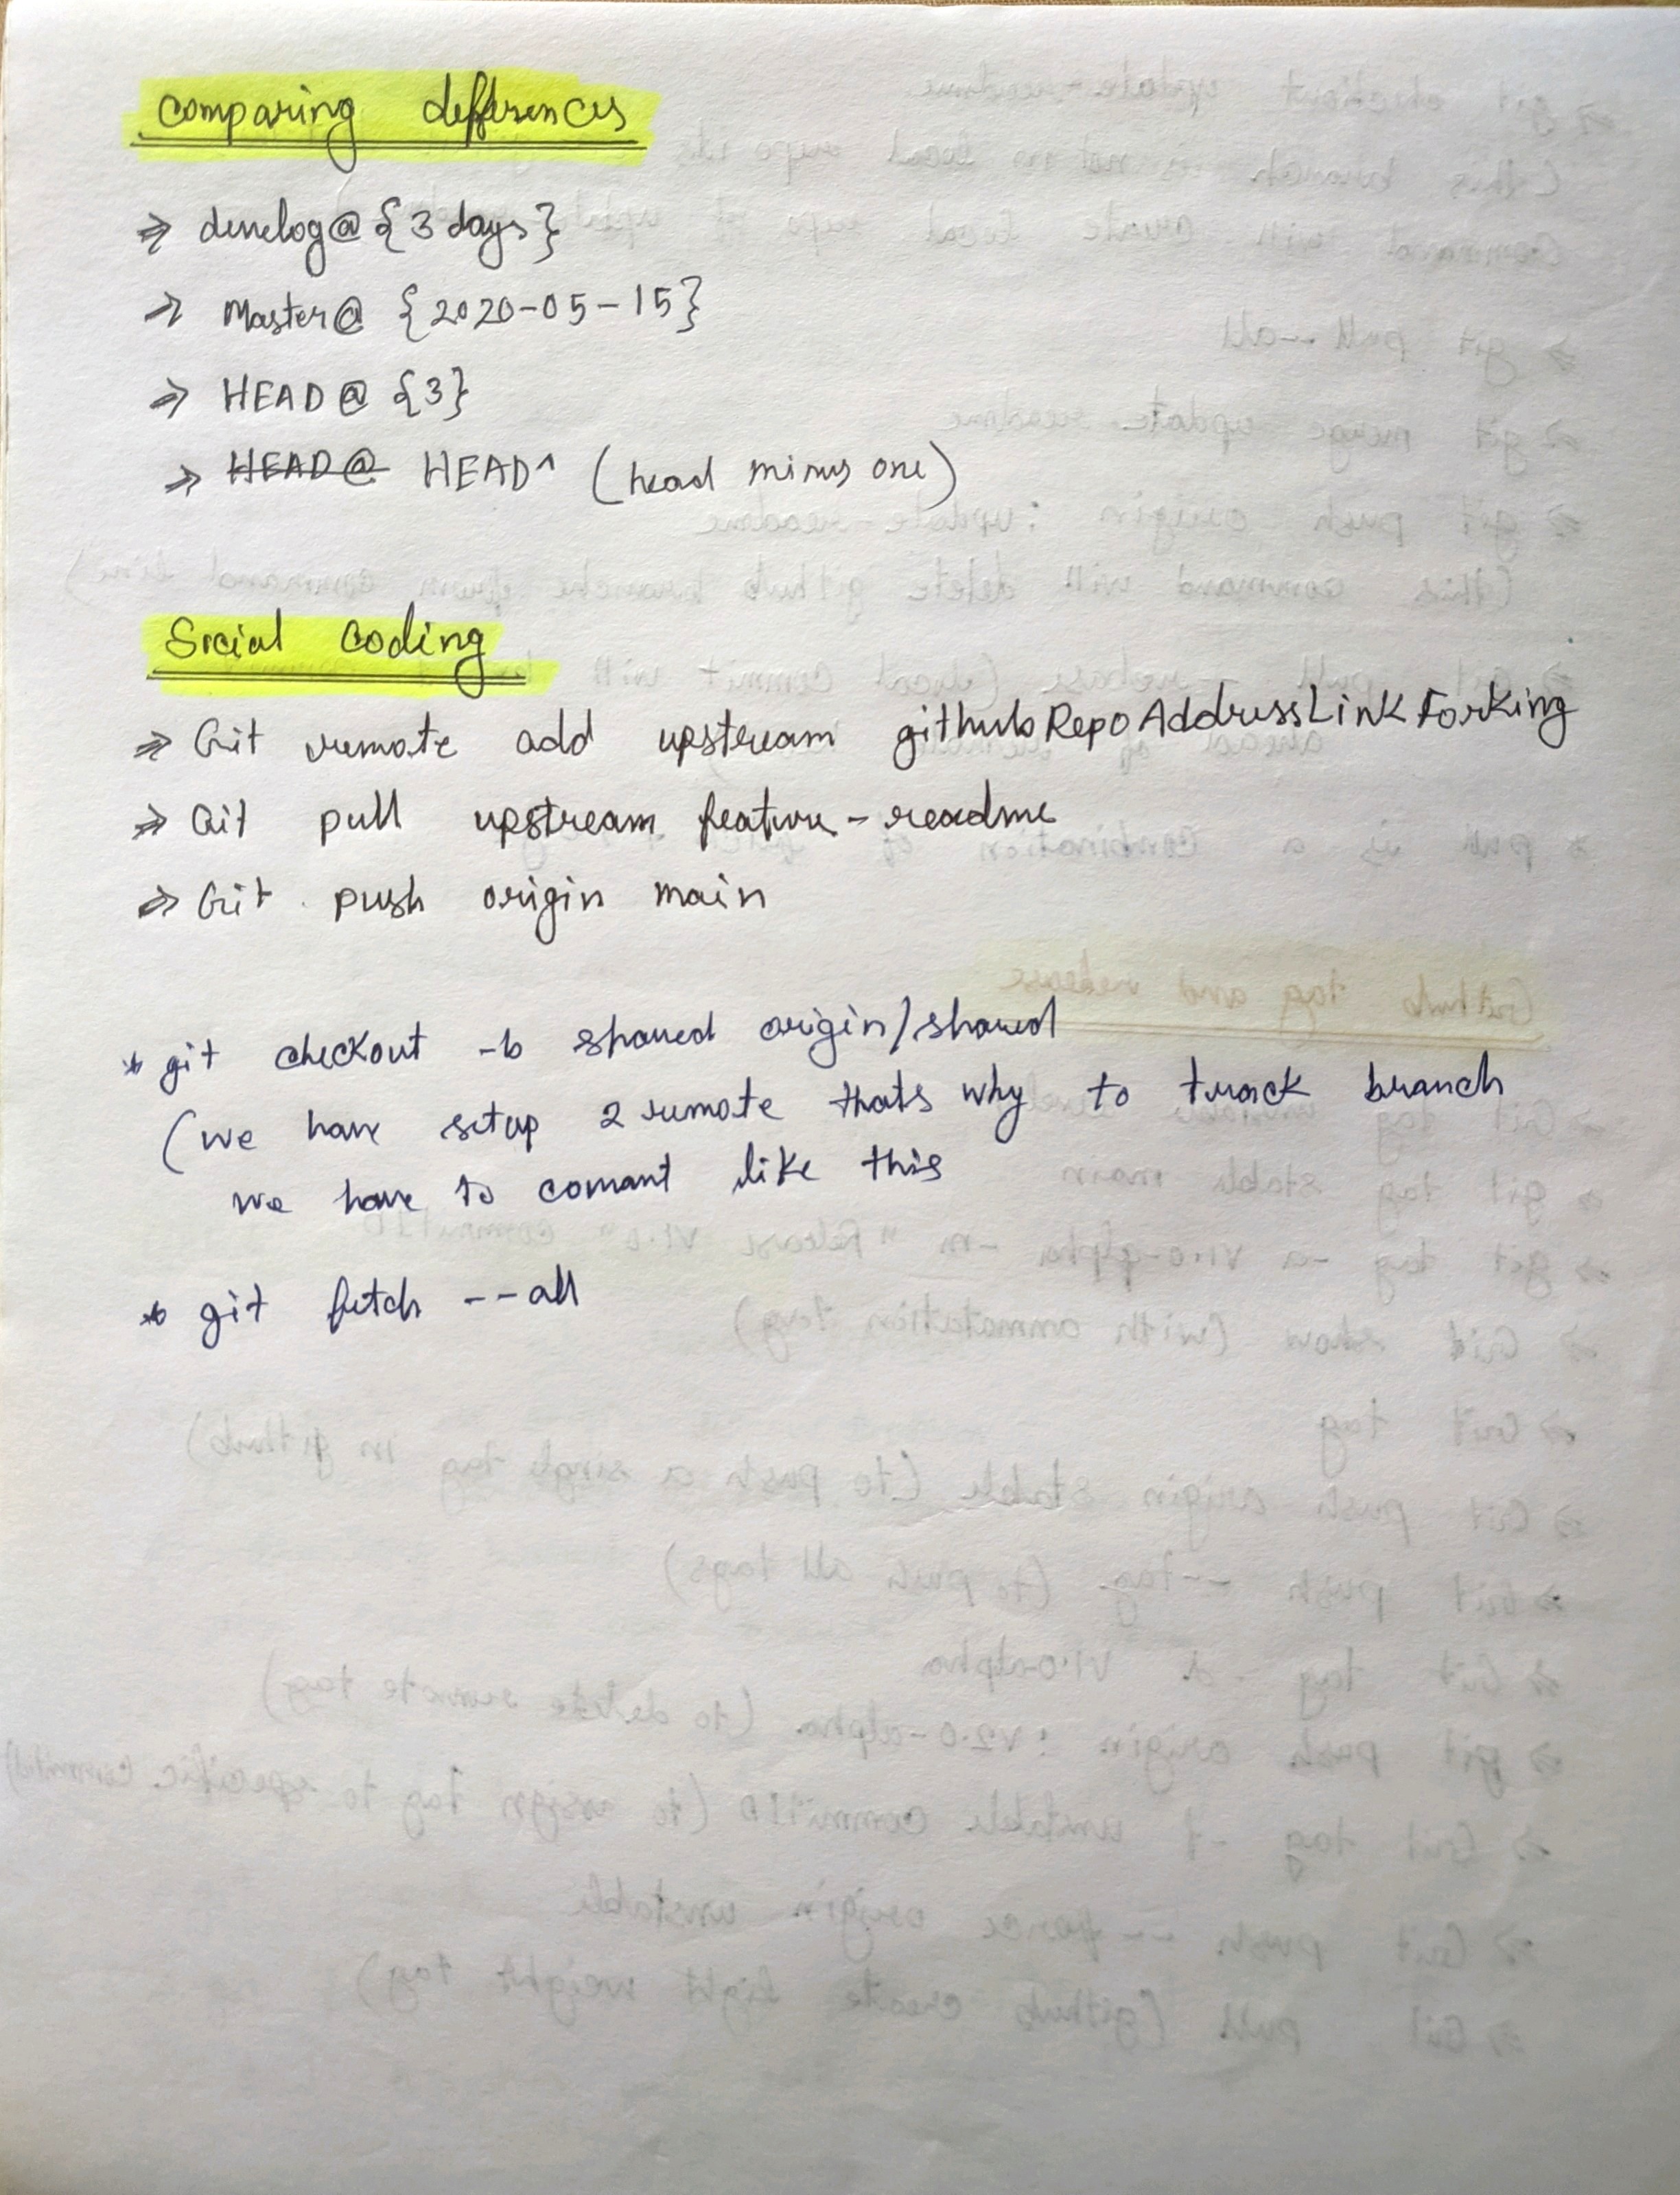 Comparing defferences
=> develog@{3 days}
=> Master@ {2020-05-15}
=> HEAD@ {3}
=> HEAD@ HEAD^ (head minus one)
Social Coding
=> Git remote add upstream githubRepoAddressLinkForking
=> Git pull upstream feature-readme
=> Git push origin main
* git checkout -b shared origin/shared
(we have setup 2 remote thats why to track branch
we have to comant like this
* git fetch --all